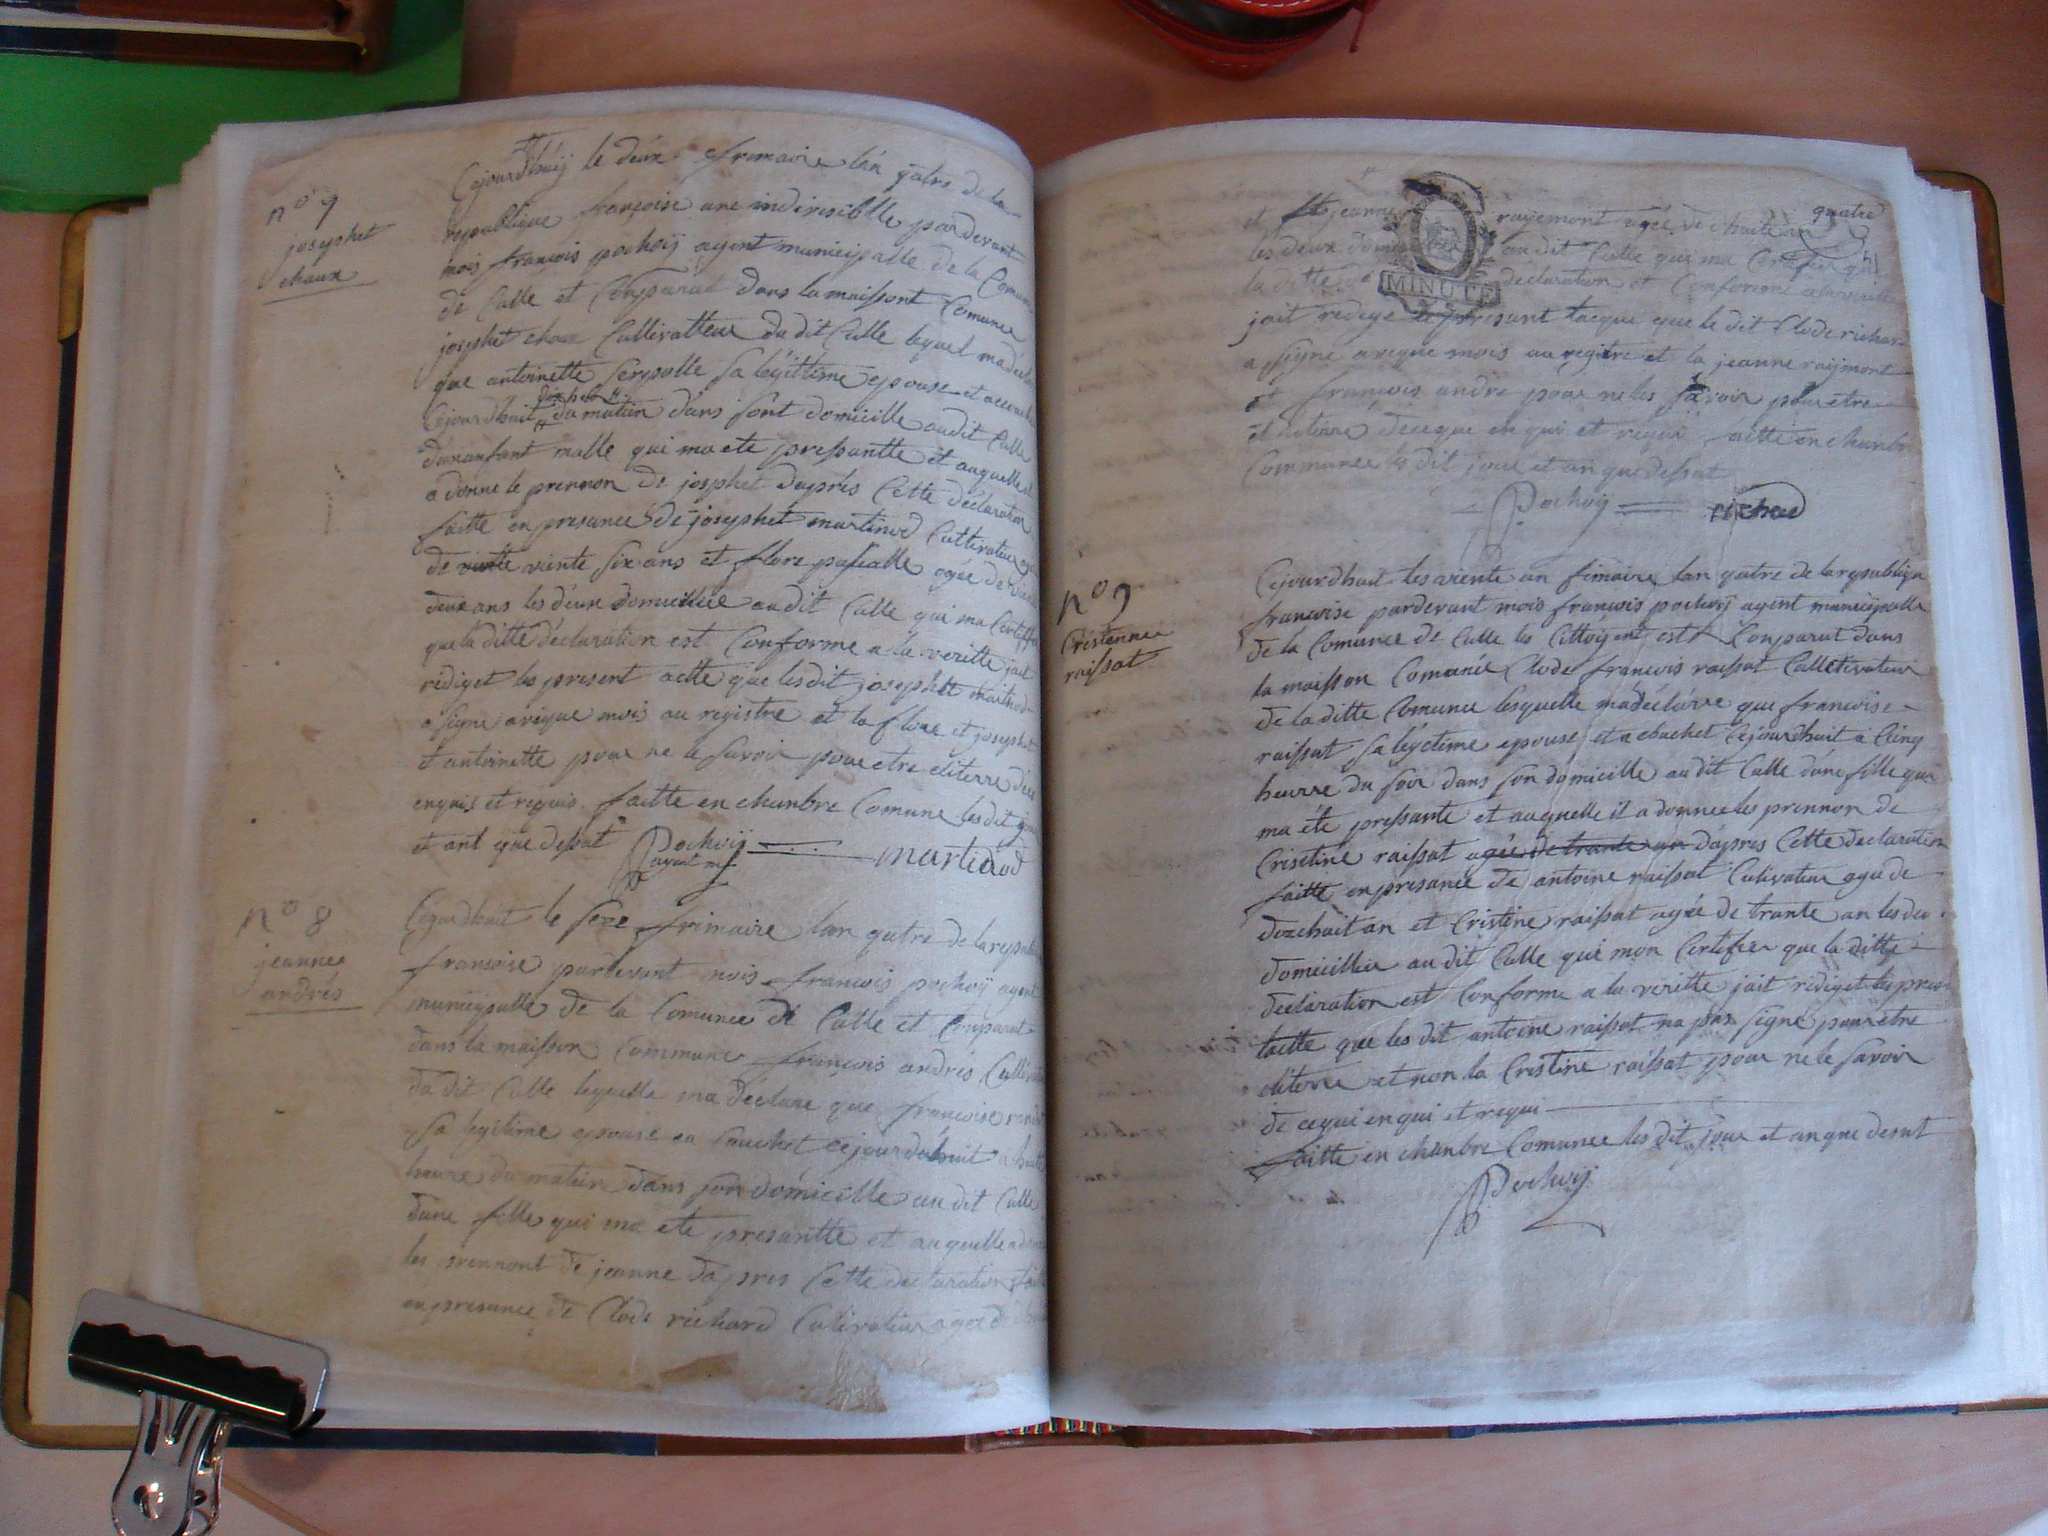 n° 9
josephet
chaux
Cejourdhuij le deux frimaire lan qatre de la
republique françoise une indivisiblle pardevant
mois françois pochoÿ agent municipalle de la Comune
de Calle et Conparut dans la maissont Comune
josephet chaux Cultivatteur du dit Calle lequel ma déclar
que antoinette serpolle sa légittime epouse et accouche
Cejourdhuit du matin dans sont domicille audit Calle
dunanfant malle qui ma ete pressantte et auquelle il
a donne le prennon de josephet daprés Cette déclaration
faitte en presance de josephet martinod Cultivateur age
de viente six ans et flore pascalle agée de viente
deux ans les deux domicillie audit Calle qui ma Certiffie
que la ditte déclaration est Conforme a la veritte jait
rédiget les present actte que lesdit josephet martinod
a signe aveque mois au registre et la flore et josephet
et antoinette pour ne le savoir pour etre eliterre dece
enquis et requis faitte en chanbre Comune les dit jour
et ant que dessut Pochoÿ agent m martinod
n° 8
jeannee
andrés
Cejourdhuit le seze frimaire lan qatre de la republique
françoise pardevant mois françois pochoÿ agent
municipalle de la Comunee de Calle et Conparut
dans la maisson Commune françois andrés Cultivateur
du dit Calle lequelle ma déclare que françoise
sa legitime epouse ea couchet cejourdahuit a huite
heure du matin dans son domicille au dit Calle
dune fille qui ma ete presantte et auquelle a donne
les prennont de jeanne dapres Cette declaration faitte
en presance de Clode richard Cultivateur agee de
quatre
51
et jeanne rayemont agée de huite an
les deux domi au dit Calle que ma Certifier que
la ditte declaration et Conforme a la veritte
jait redige le present lacque que le dit Clode richard
a signe aveque mois au registre et la jeanne raijmont
et françois andre pour ne les savoir pour etre
eliterre deceque en qui et requi faitte en chanbre
Commune les dit jour et an que dessut
Pochoÿ richard
MINUTE
n° 9
Cristennee
raissat
Cejourdhuit les viente un frimaire lan qatre de la republique
francoise pardevant mois francois pochoÿ agent municipalle
de la Comunee de Calle les Cittoÿent est Conparut dans
la maisson Comunée Clode francois raissat Calletivateur
de la ditte Comunee lesquelle ma déclarre que francoise
raissat sa légetime epouse et acbuchet Cejourdhuit a Cinq
heurre du soir dans son domicille au dit Calle dune fille qui
ma éte pressante et auquelle il a donnee les prennon de
Cristine raissat agée de trante an dapres Cette declaration
faitte en presance de antoine raissat Cultivateur age de
dizehuit an et Cristine raissat agée de trante an les deu
domicillie au dit Calle qui mon Certifier que la ditte
declaration est Conforme a la veritte jait rédiget les presen
lactte que les dit antoine raissat na pas signe pour etre
eliterre et non la Cristine raissat pour ne le savoir
de cequi en qui et requi
faitte en chanbre Comunee les dit jour et an que desut
Pochoÿ